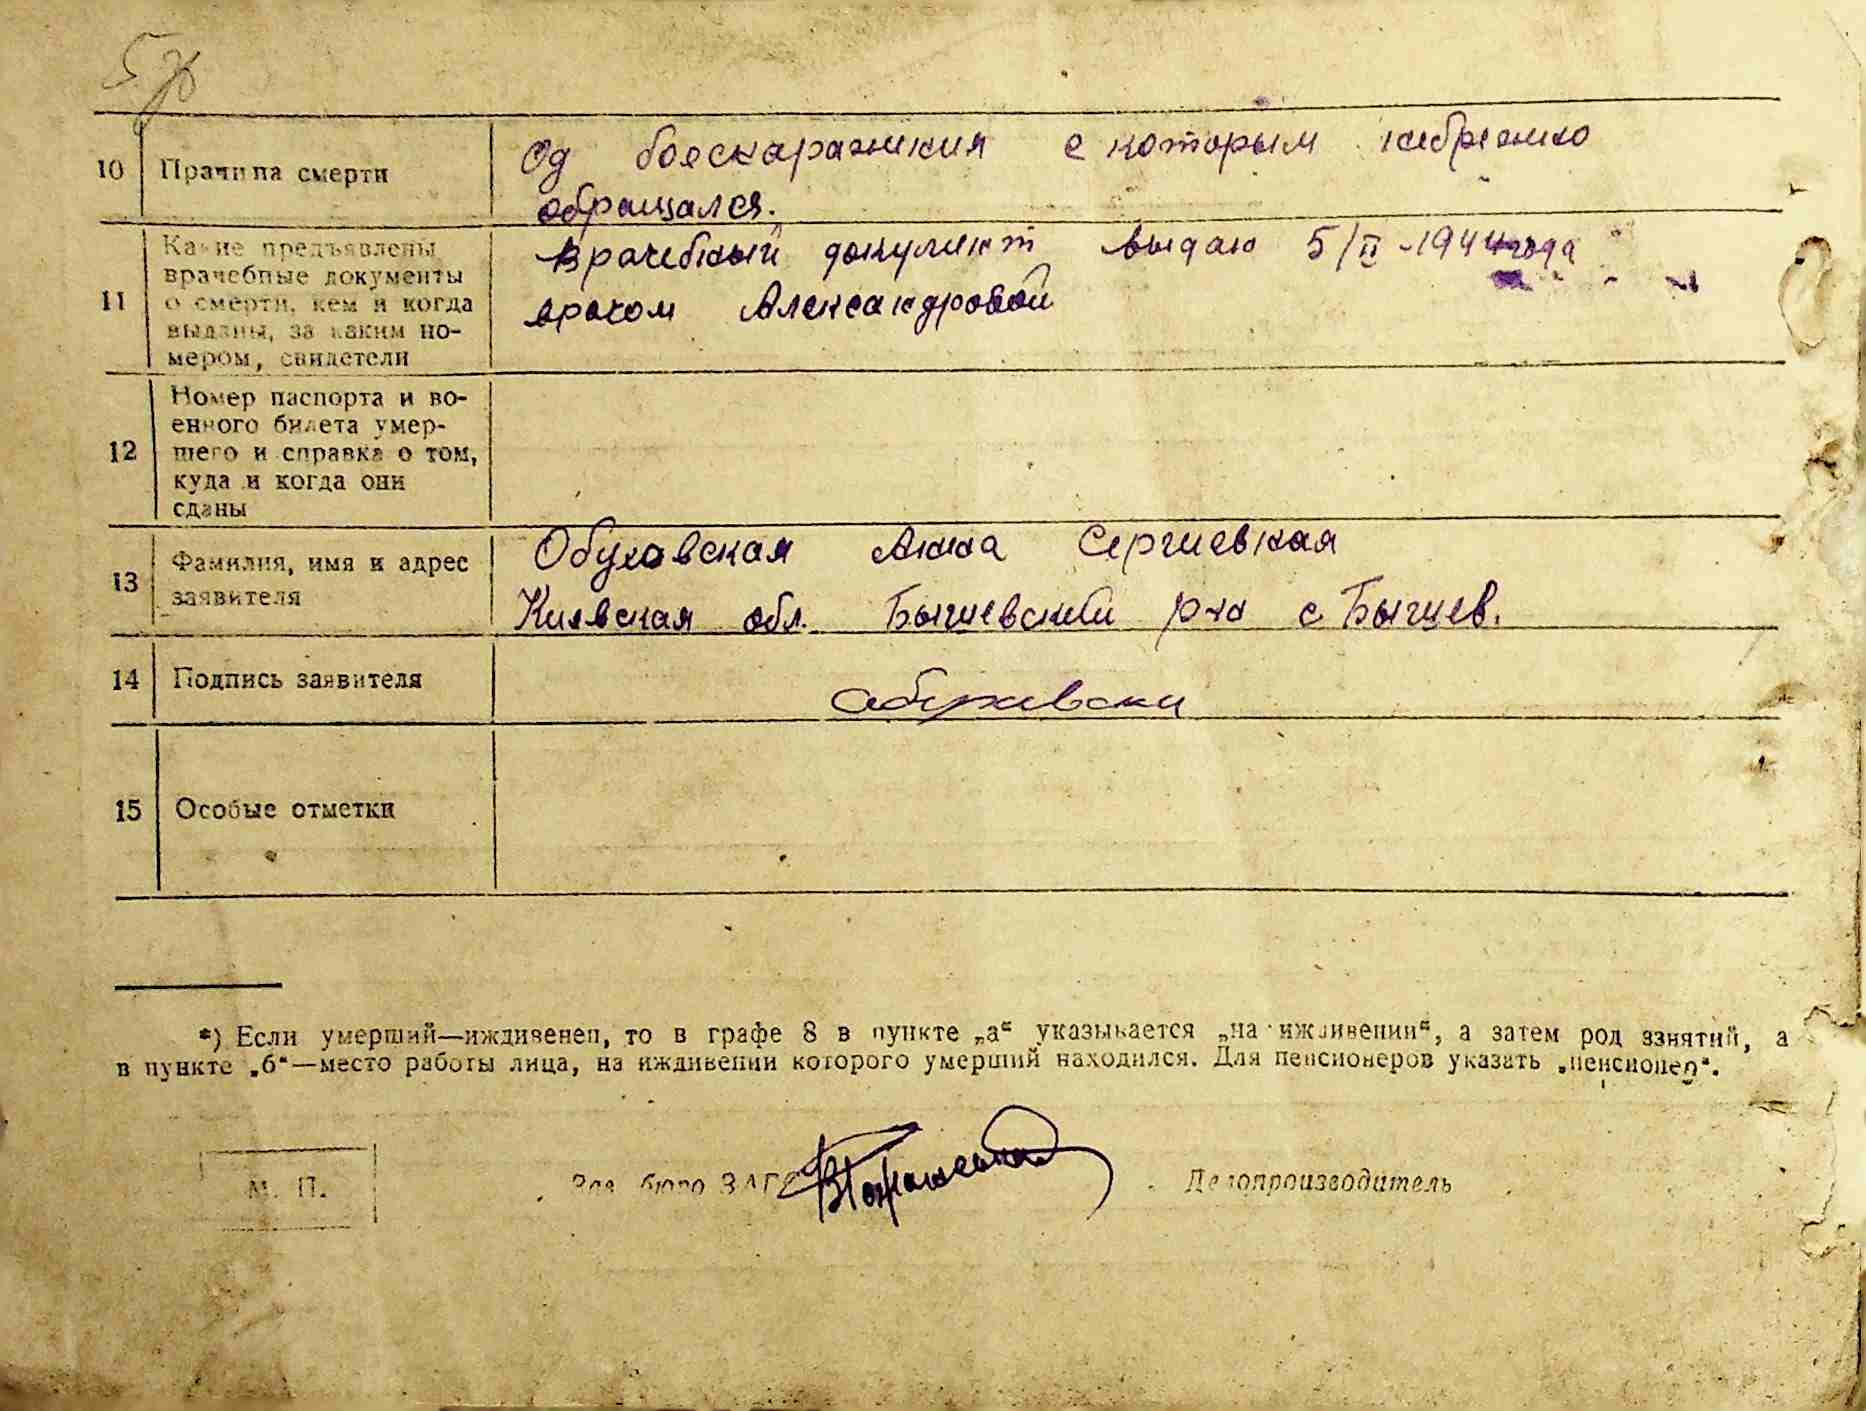 10 Причина смерти
Од боескаражения с которым небрежно
обращался.
11 Какие предъявлены
врачебные документы
о смерти, кем и когда
выданы, за каким но-
мером, свидетели
Врачебный документ выдан 5/II-1944 года
врачом Александровой
12 Номер паспорта и во-
енного билета умер-
шего и справка о том,
куда и когда они
сданы
13 Фамилия, имя и адрес
заявителя
Обуховская Анна Сергиевная
Киевская обл. Бышевский р-на с Бышев.
14 Подпись заявителя
15 Особые отметки
*) Если умерший—иждивенец, то в графе 8 в пункте „а“ указывается „на иждивении“, а затем род занятий, а
в пункте „б“—место работы лица, на иждивении которого умерший находился. Для пенсионеров указать „пенсионер“.
М. П.
Зав. бюро ЗАГС
Делопроизводитель